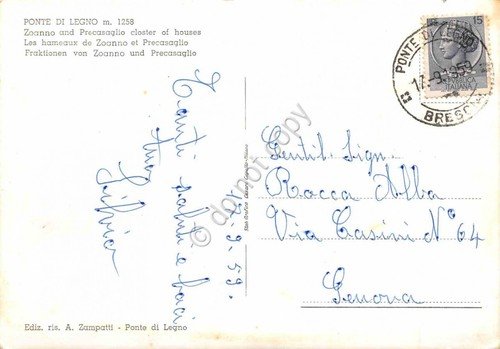 PONTE DI LEGNO m. 1258
Zoanno and Precasaglio closter of houses
Les hameaux de Zoanno et Precasaglio
Fraktionen von Zoanno und Precasaglio
15
PONTE DI LEGNO
17.9.1959
BRESCIA
7.9.59.
Tanti saluti e baci
tua
Silvia
Gentil. Sign.
Rocca Alba
Via Casini N° 64
Genova
© dornot copy
Ediz. ris. A. Zampatti - Ponte di Legno